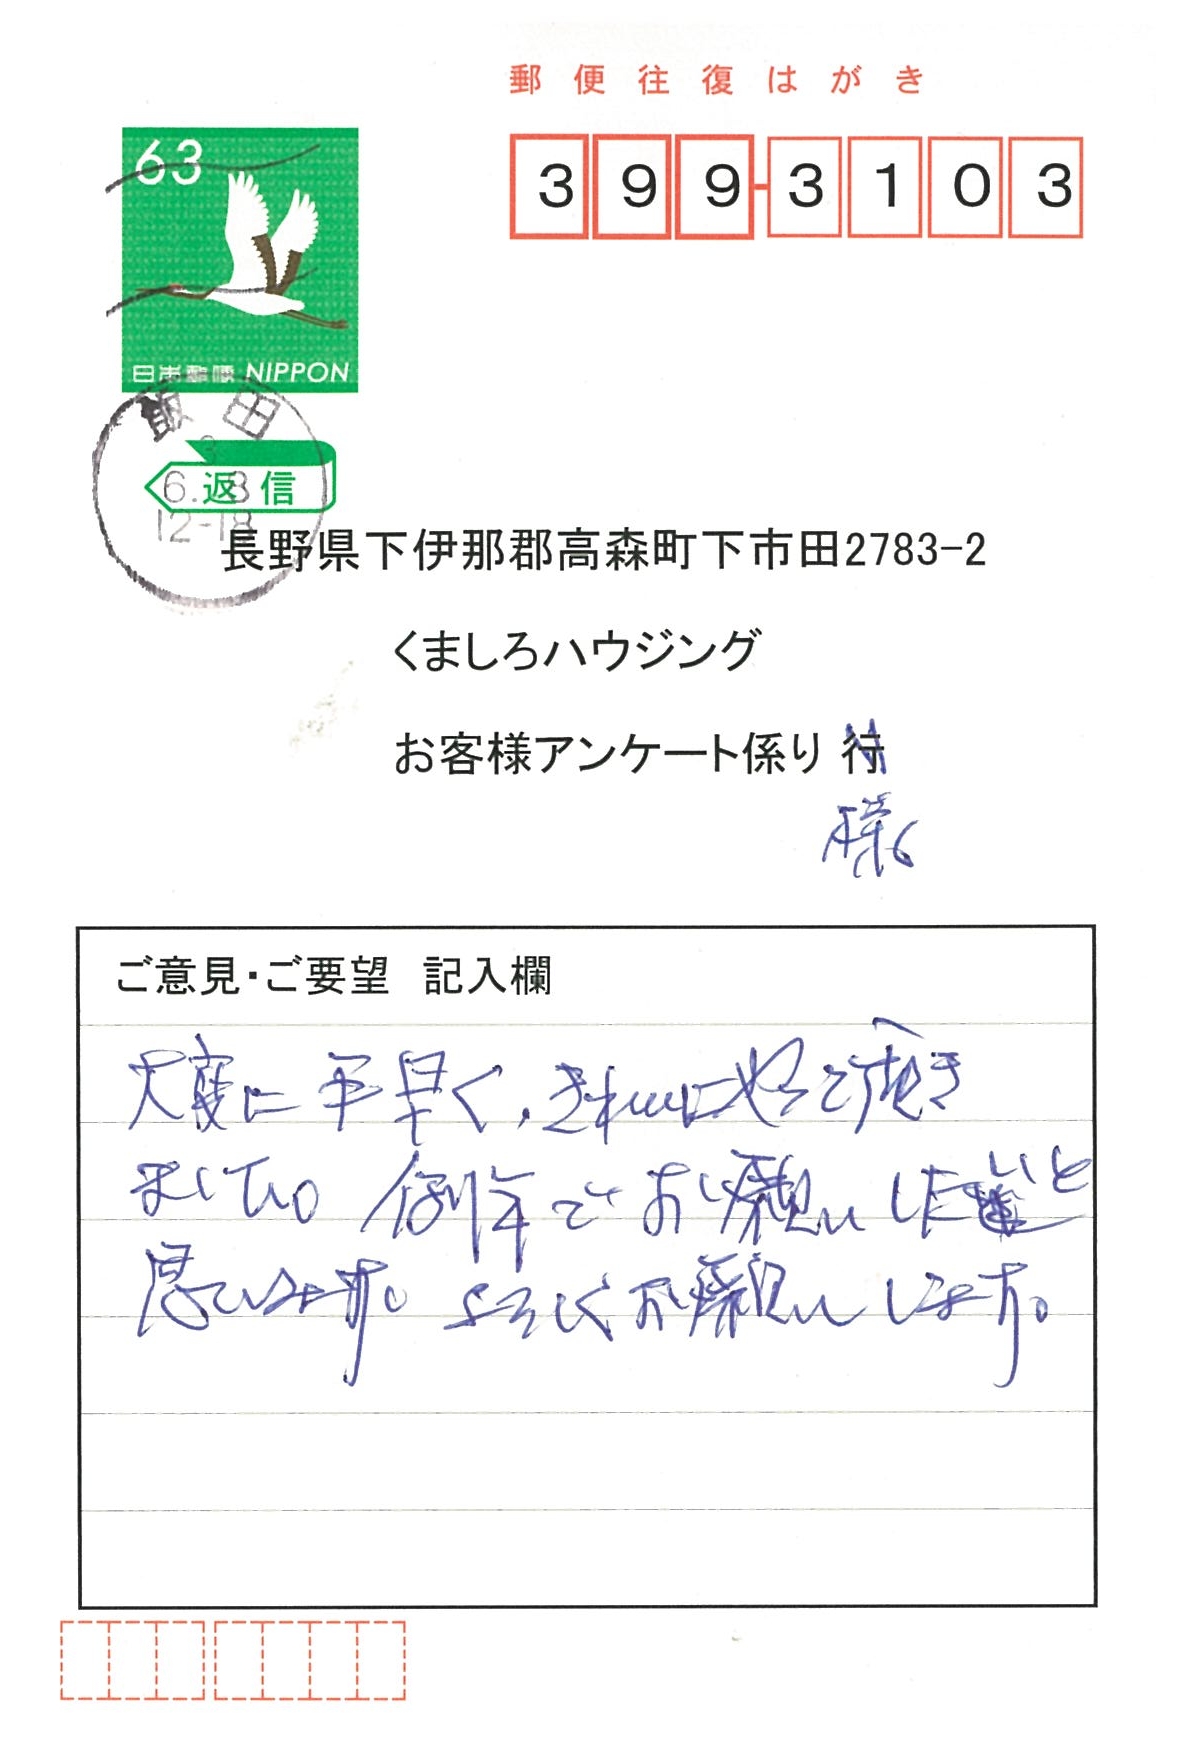 郵便往復はがき
63
399-3103
日本郵便 NIPPON
飯田
6.3.3
返信
12-18
長野県下伊那郡高森町下市田2783-2
くましろハウジング
お客様アンケート係り 行
様
ご意見・ご要望 記入欄
大変に手早く、きれいにやって頂き
ました。例年でお願いしたいと
思います。よろしくお願いします。